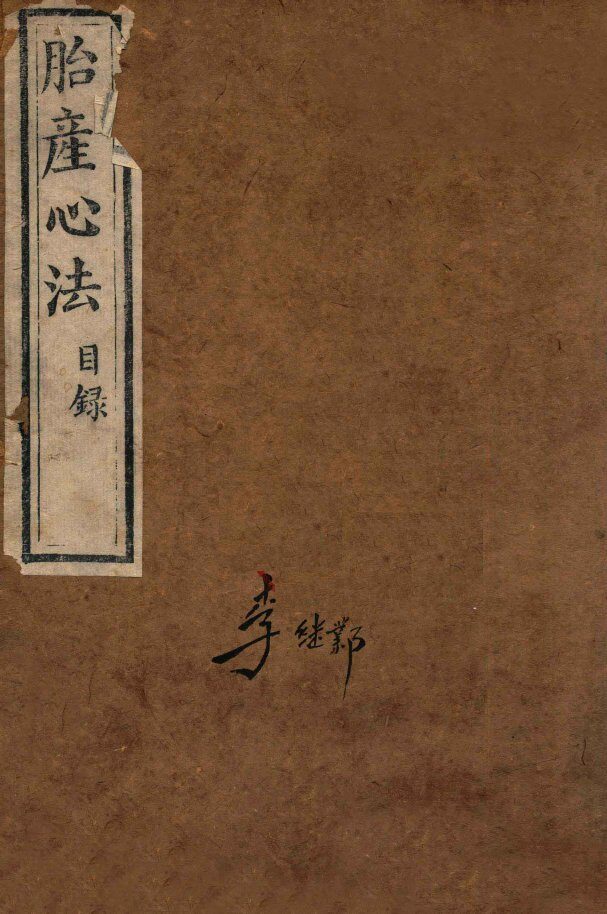 胎產心法
目録
李继鄴